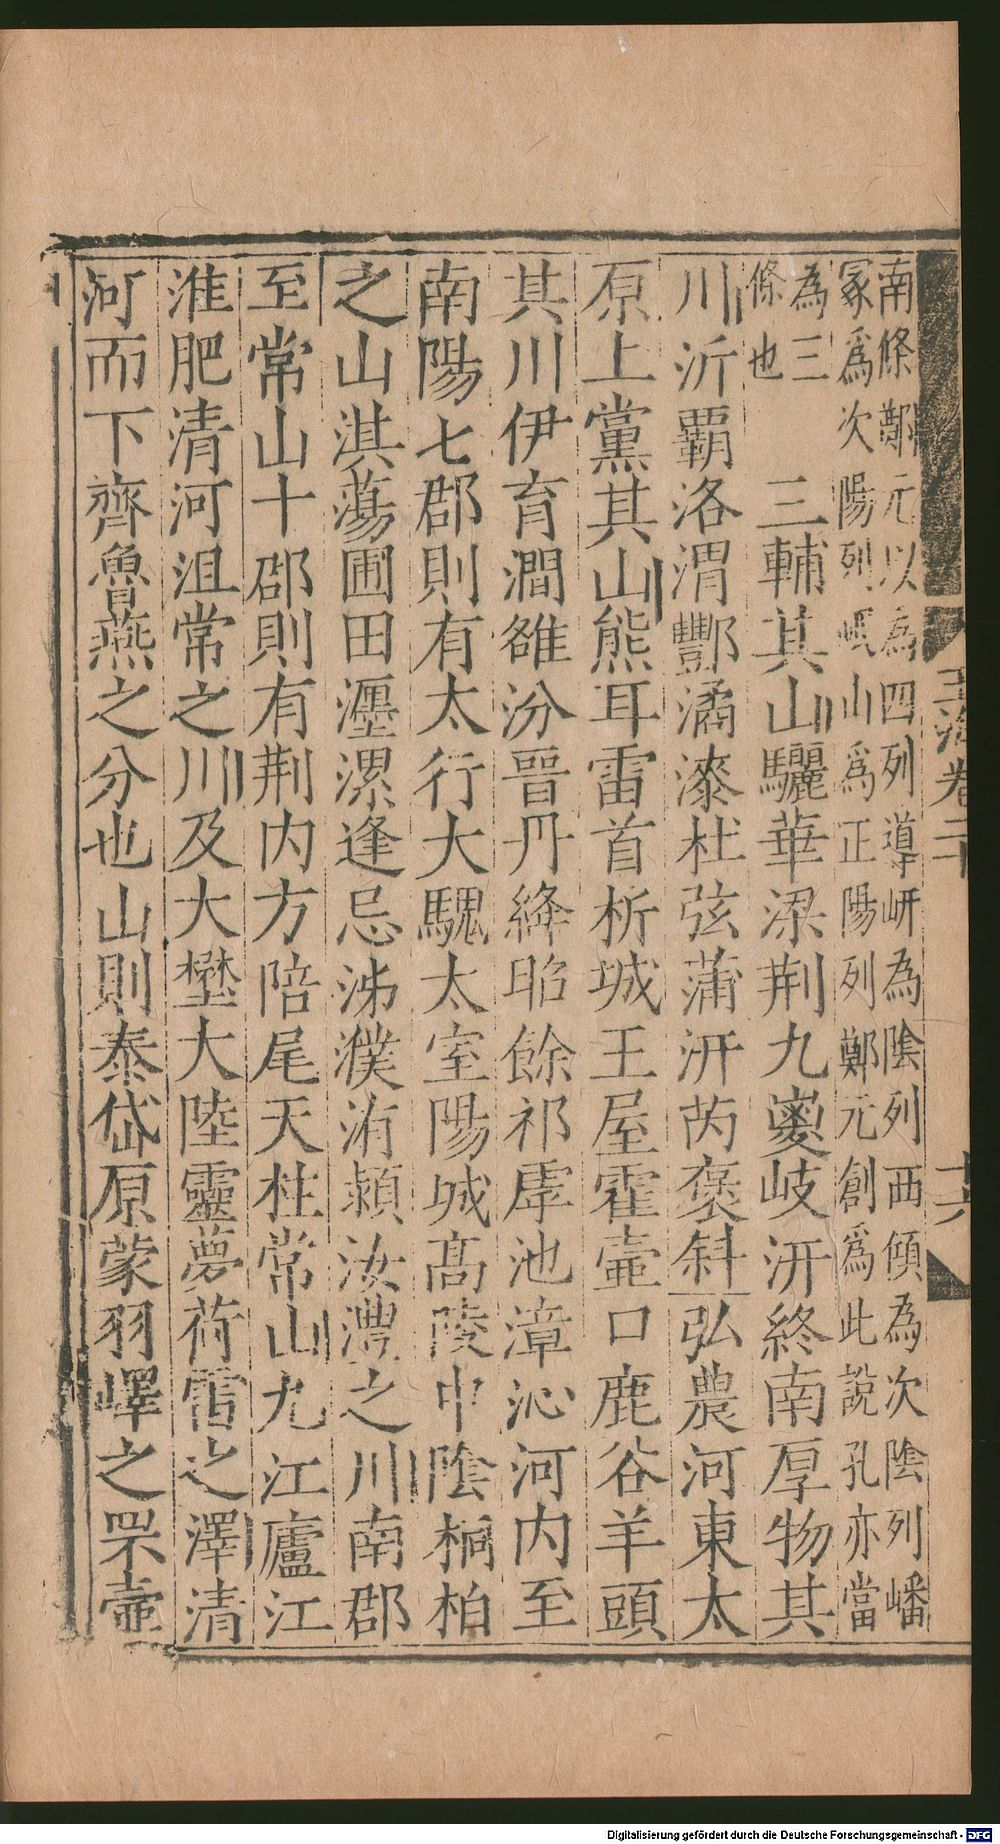 南條鄭元以為四列導岍為陰列西傾為次陰列嶓
冢爲次陽列岷山爲正陽列鄭元創爲此說孔亦當
為三
條也
三輔其山驪華梁荆九嵕岐汧終南厚物其
川沂覇洛渭酆潏漆杜弦蒲汧芮褒斜弘農河東太
原上黨其山熊耳雷首析城王屋霍壷口鹿谷羊頭
其川伊育澗雒汾晉丹絳昭餘祁虖池漳沁河内至
南陽七郡則有太行大騩太室陽城髙陵中陰桐柏
之山淇蕩圃田瀍漯逢忌泲濮洧潁汝澧之川南郡
至常山十郡則有荆内方陪尾天柱常山九江廬江
淮肥清河沮常之川及大壄大陸靈夢荷雷之澤清
河而下齊魯燕之分也山則泰岱原蒙羽嶧之罘壷
卷二十
十六
Digitalisierung gefördert durch die Deutsche Forschungsgemeinschaft - DFG